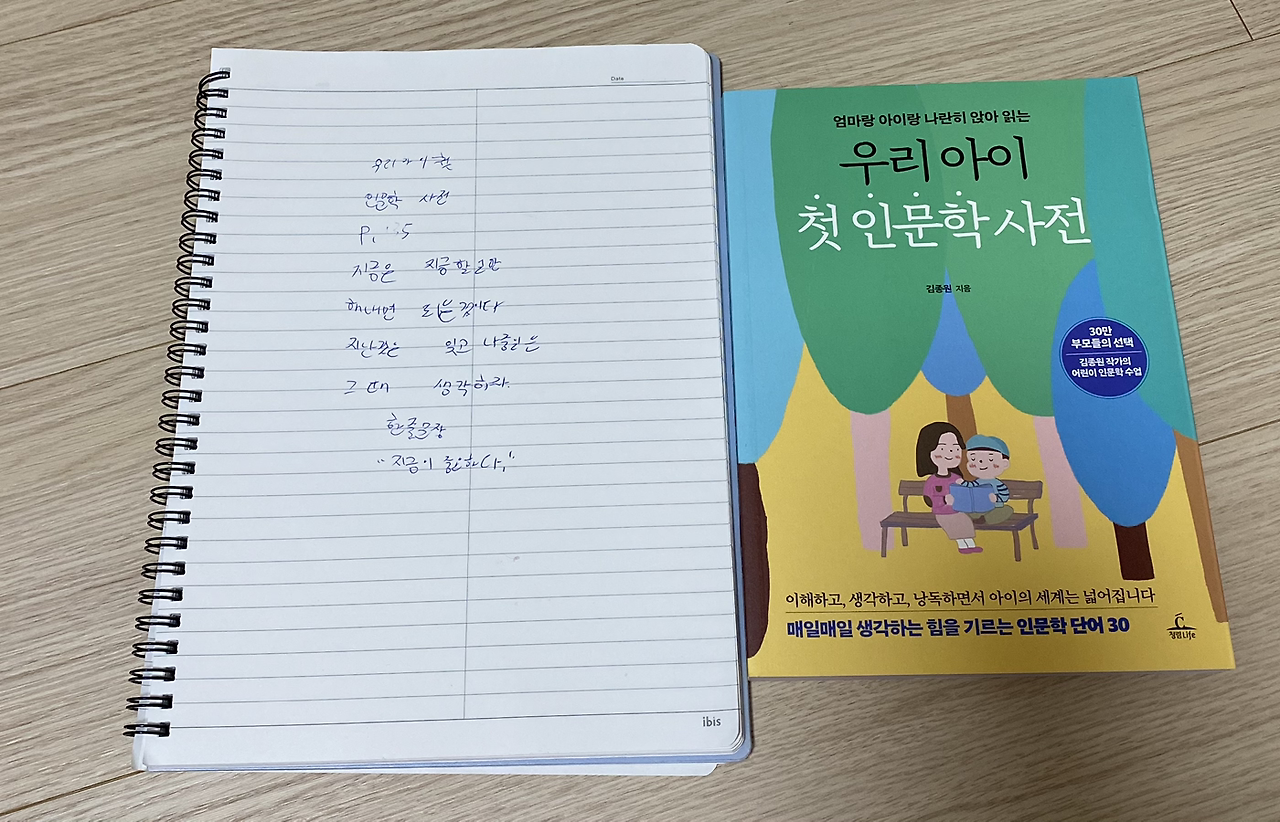 Date
우리 아이 첫
인문학 사전
지금은 지금 할 일만
해내면 되는 것이다
지난 것은 잊고 나중 일은
그 때 생각하라.
한줄문장
"지금이 중요하다."
ibis
엄마랑 아이랑 나란히 앉아 읽는
우리 아이
첫 인문학 사전
김종원 지음
30만
부모들의 선택
김종원 작가의
어린이 인문학 수업
이해하고, 생각하고, 낭독하면서 아이의 세계는 넓어집니다
매일매일 생각하는 힘을 기르는 인문학 단어 30
청림Life